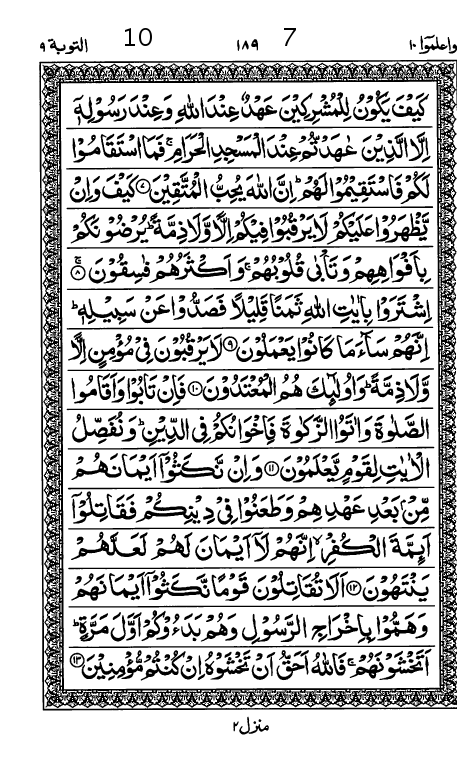 واعلموا ١٠ 7 ١٨٩ 10 التوبة ٩
كَيْفَ يَكُوْنُ لِلْمُشْرِكِيْنَ عَهْدٌ عِنْدَ اللهِ وَعِنْدَ رَسُوْلِهٖۤ
اِلَّا الَّذِيْنَ عٰهَدْتُّمْ عِنْدَ الْمَسْجِدِ الْحَرَامِ ۚ فَمَا اسْتَقَامُوْا
لَكُمْ فَاسْتَقِيْمُوْا لَهُمْ ؕ اِنَّ اللهَ يُحِبُّ الْمُتَّقِيْنَ ﴿٧﴾ كَيْفَ وَاِنْ
يَّظْهَرُوْا عَلَيْكُمْ لَا يَرْقُبُوْا فِيْكُمْ اِلًّا وَّلَا ذِمَّةً ؕ يُرْضُوْنَكُمْ
بِاَفْوَاهِهِمْ وَتَاْبٰى قُلُوْبُهُمْ ۚ وَاَكْثَرُهُمْ فٰسِقُوْنَ ﴿٨﴾ ۚ
اِشْتَرَوْا بِاٰيٰتِ اللهِ ثَمَنًا قَلِيْلًا فَصَدُّوْا عَنْ سَبِيْلِهٖ ؕ
اِنَّهُمْ سَآءَ مَا كَانُوْا يَعْمَلُوْنَ ﴿٩﴾ لَا يَرْقُبُوْنَ فِيْ مُؤْمِنٍ اِلًّا
وَّلَا ذِمَّةً ؕ وَاُولٰٓئِكَ هُمُ الْمُعْتَدُوْنَ ﴿١٠﴾ فَاِنْ تَابُوْا وَاَقَامُوا
الصَّلٰوةَ وَاٰتَوُا الزَّكٰوةَ فَاِخْوَانُكُمْ فِي الدِّيْنِ ؕ وَنُفَصِّلُ
الْاٰيٰتِ لِقَوْمٍ يَّعْلَمُوْنَ ﴿١١﴾ وَاِنْ نَّكَثُوْۤا اَيْمَانَهُمْ
مِّنْۢ بَعْدِ عَهْدِهِمْ وَطَعَنُوْا فِيْ دِيْنِكُمْ فَقَاتِلُوْۤا
اَئِمَّةَ الْكُفْرِ ۙ اِنَّهُمْ لَاۤ اَيْمَانَ لَهُمْ لَعَلَّهُمْ
يَنْتَهُوْنَ ﴿١٢﴾ اَلَا تُقَاتِلُوْنَ قَوْمًا نَّكَثُوْۤا اَيْمَانَهُمْ
وَهَمُّوْا بِاِخْرَاجِ الرَّسُوْلِ وَهُمْ بَدَءُوْكُمْ اَوَّلَ مَرَّةٍ ؕ
اَتَخْشَوْنَهُمْ ۚ فَاللهُ اَحَقُّ اَنْ تَخْشَوْهُ اِنْ كُنْتُمْ مُّؤْمِنِيْنَ ﴿١٣﴾
منزل ٢